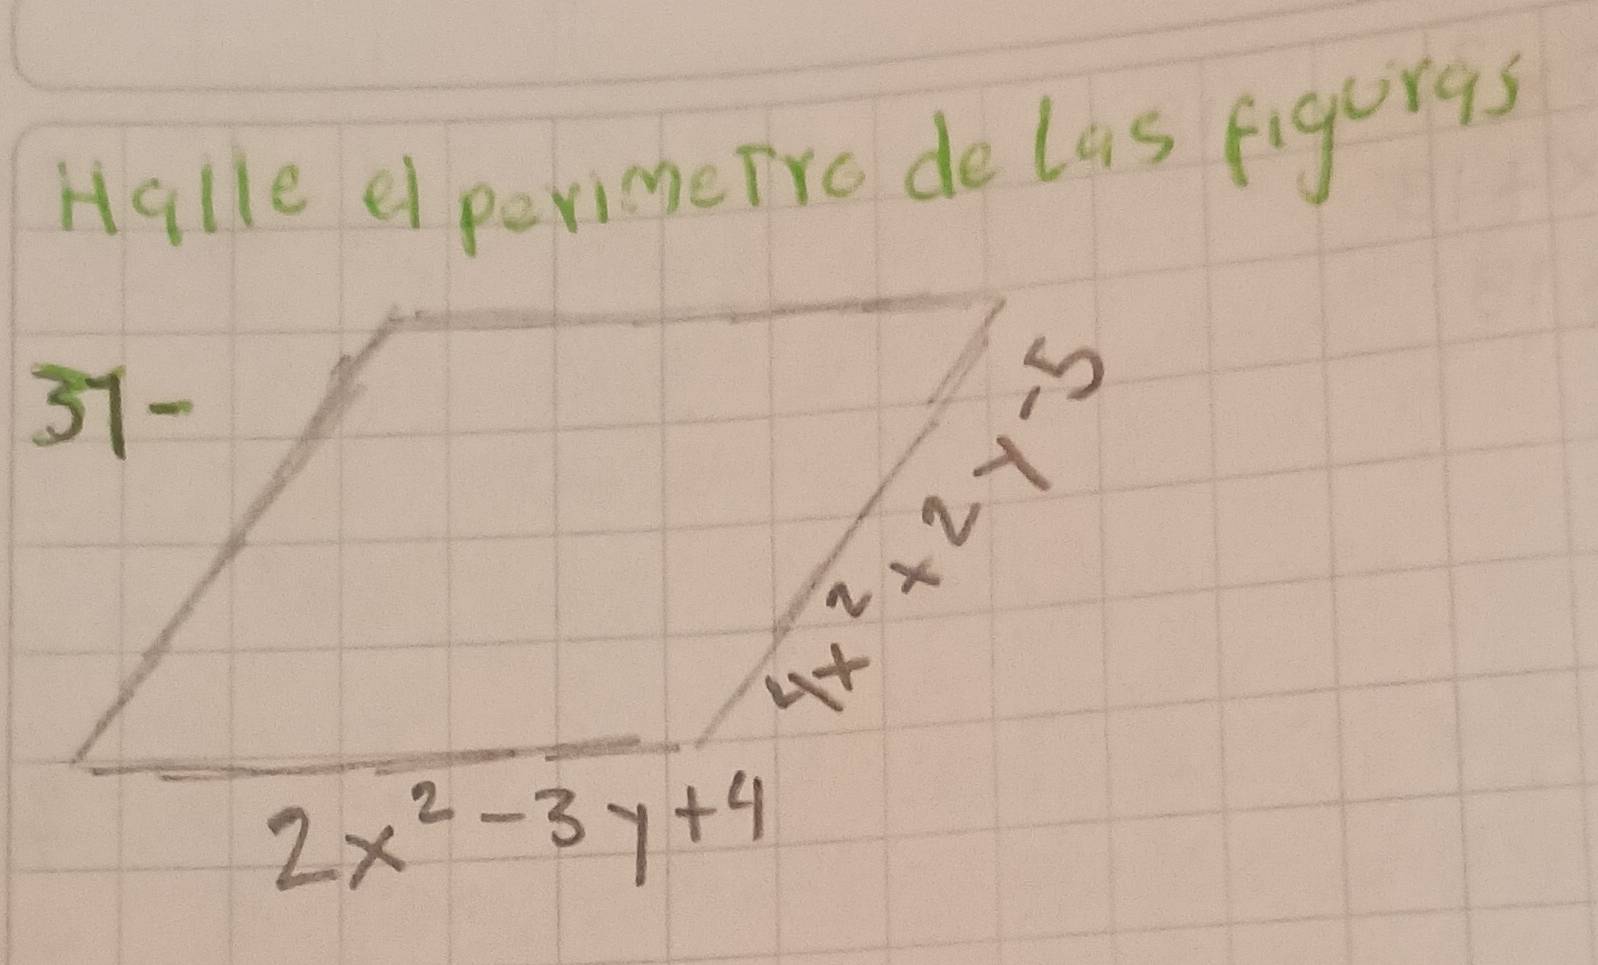 Halle el perimetro de las figuras
37-
4x² x 2 y - 5
2x² - 3y + 4